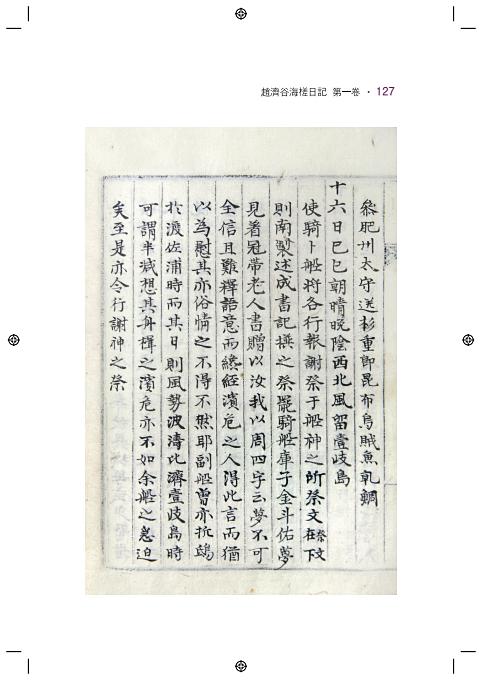 趙濟谷海槎日記 第一卷 · 127
叅肥州太守送杉重卽昆布烏賊魚乾鯛
十六日己巳朝晴晩陰西北風留壹岐島
使騎卜船將各行報謝祭于船神之所祭文祭文在下
則南製述成書記撰之祭罷騎船庫子金斗佑夢
見着冠帶老人書贈以汝我以周四字云夢不可
全信且難釋語意而纔經濱危之人得此言而猶
以為慰其亦俗情之不得不然耶副船曾亦抗鴟
於渡佐浦時而其日則風勢波濤比濟壹岐島時
可謂半减想其舟楫之濱危亦不如余船之急迫
矣至是亦令行謝神之祭